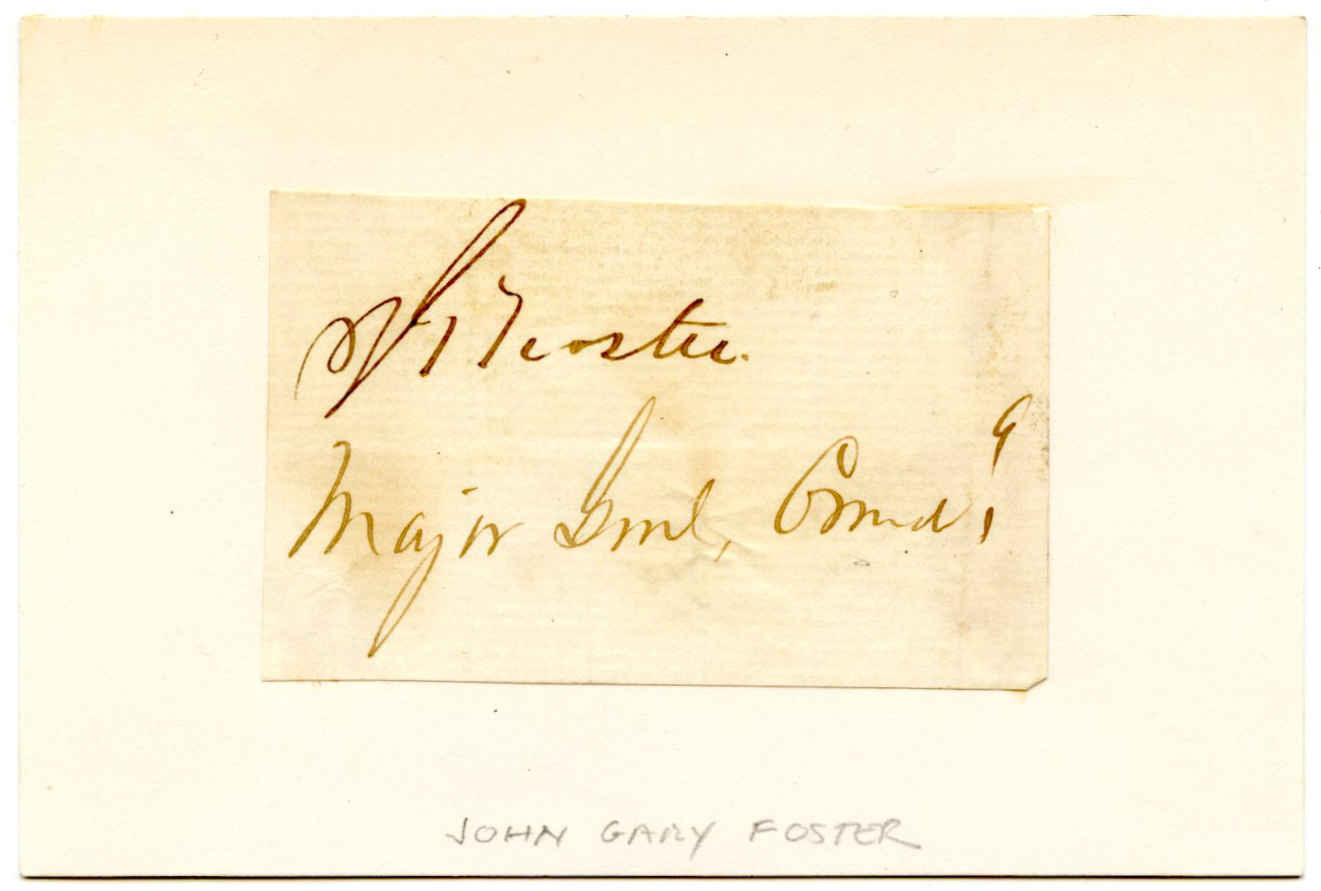 J. G. Foster.
Major Genl, Comd'g
JOHN GARY FOSTER